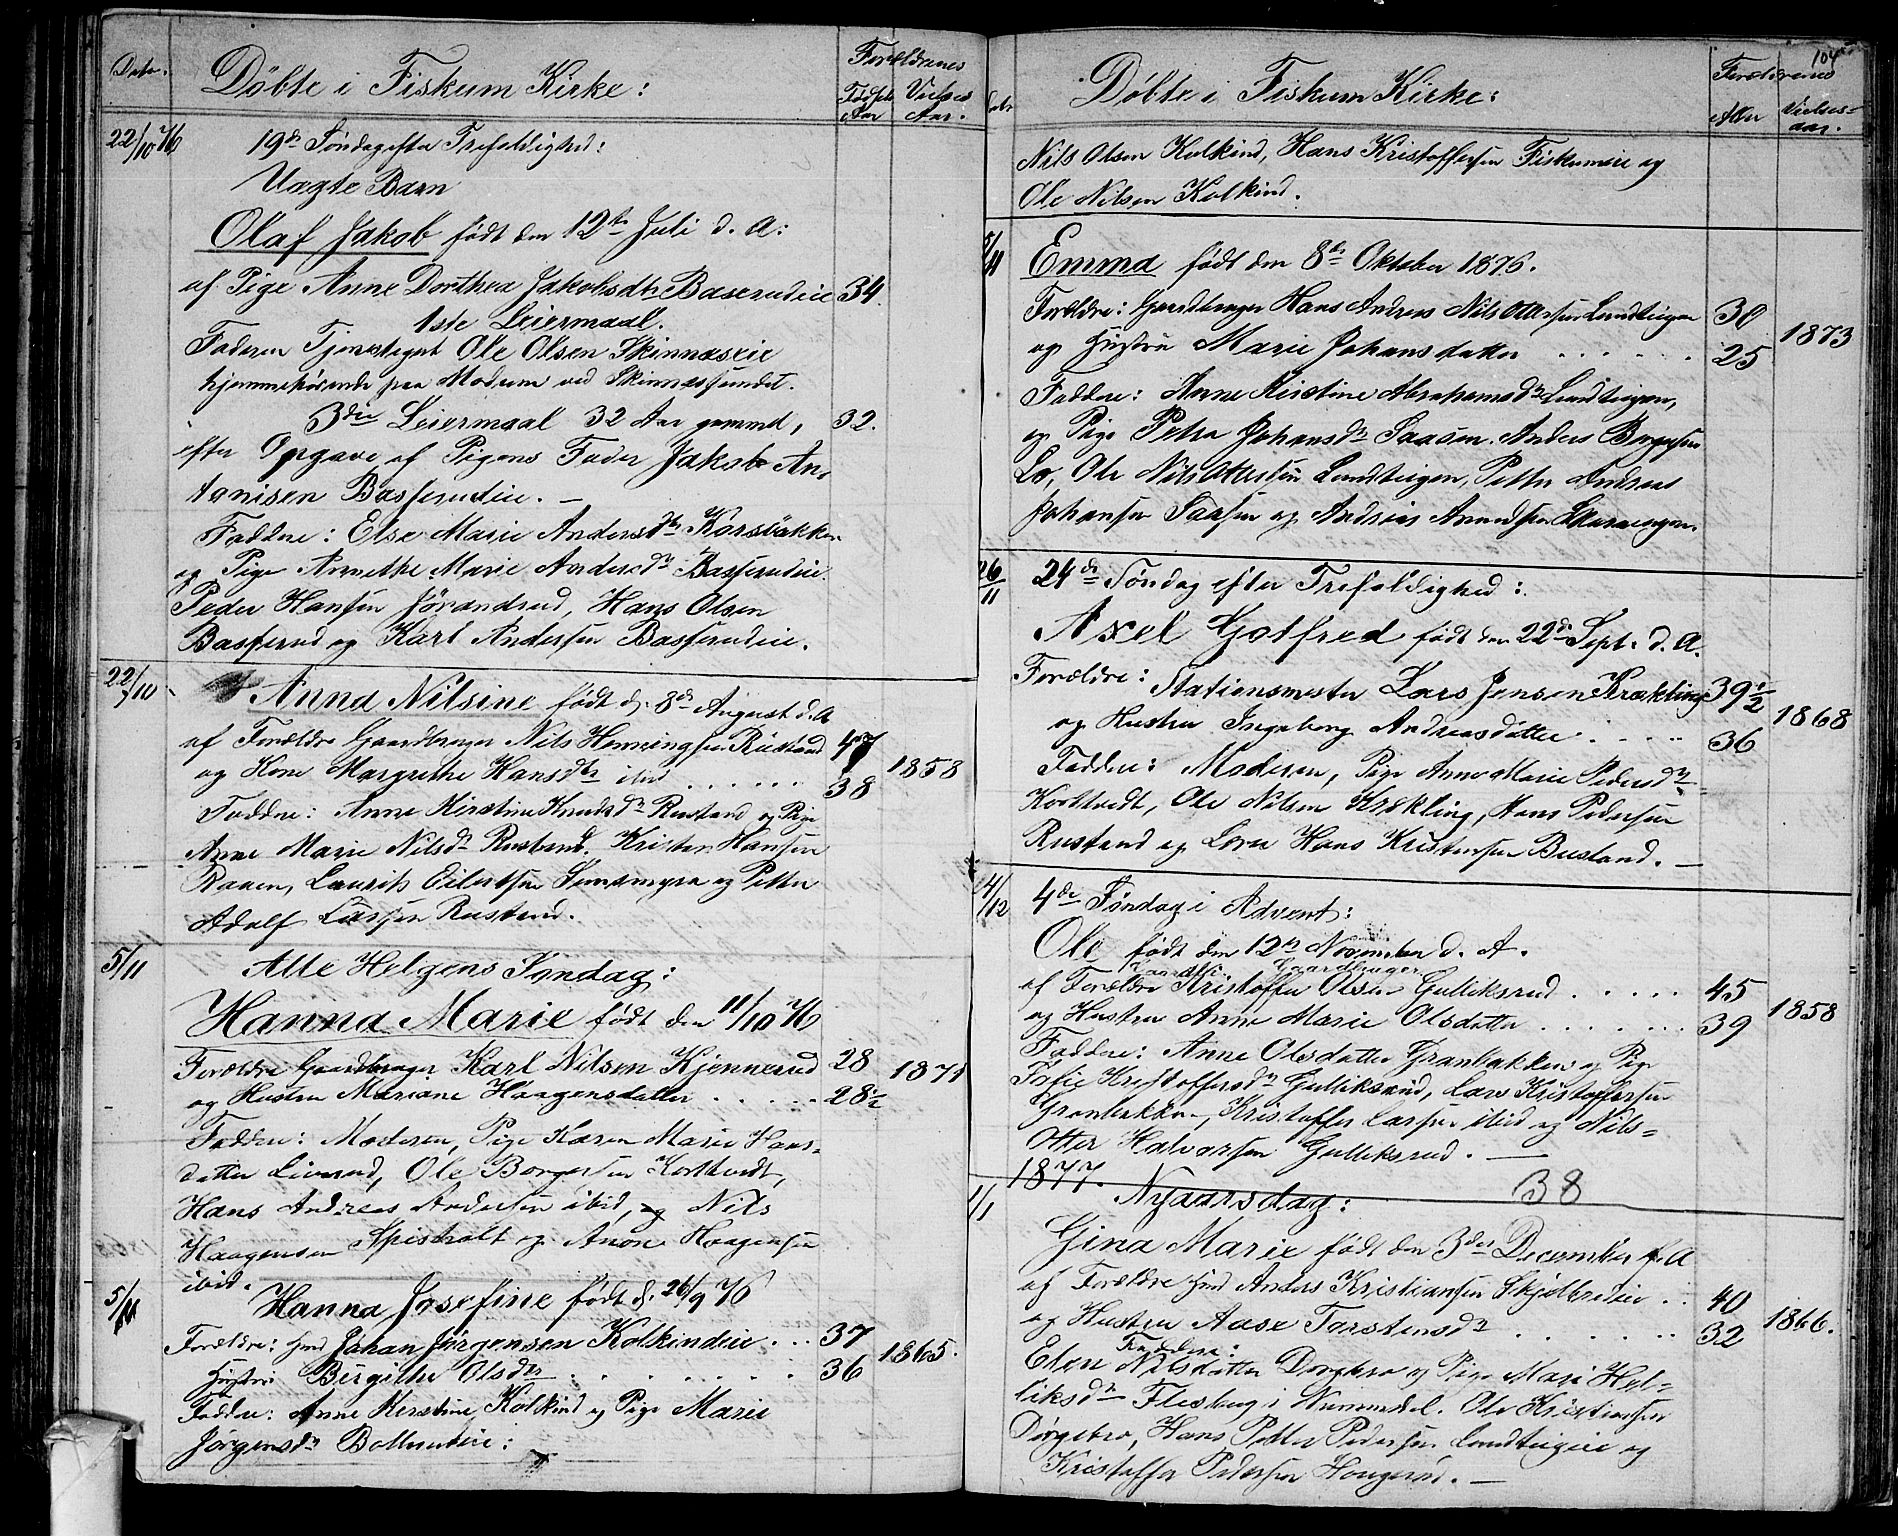 Dato.
Døbte i Fiskum Kirke:
Forældrenes
Fødsels Aar
Vielses Aar.
22/10 76
19de Søndag efter Trefoldighed:
Uægte Barn
Olaf Jakob født den 12te Juli d. A:
af Pige Anne Dorthea Jakobsdtr Baserudeie 34
1ste Leiermaal.
Faderen Tjenestegut Ole Olsen Skinnæseie
hjemmehørende paa Modum ved Skinnessundet.
3die Leiermaal 32 Aar gammel, 32.
efter Opgave af Pigens Fader Jakob An-
tonisen Basserudeie. —
Faddere: Else Marie Andersdtr Korsbakken
og Pige Annethe Marie Andersdtr Basserudeie.
Peder Hansen Jørandrud, Hans Olsen
Basserud og Karl Andersen Basserudeie.
22/10
Anna Nilsine født d. 8de August d. A
af Forældre Gaardbruger Nils Henningsen Rustand 47
og Kone Margrethe Hansdtr ibid 38 1858
Faddere: Anne Kirstine Knudsdtr Rustand og Pige
Anne Marie Nilsdtr Rustand, Kristen Hansen
Raaen, Laurits Eilertsen Semsmyra og Petter
Adolf Larsen Rustand.
5/11
Alle Helgens Søndag:
Hanna Marie født den 11/10 76
Forældre Gaardbruger Karl Nilsen Kjennerud 28
og Hustru Mariane Haagensdatter 28½ 1871
Faddere: Moderen, Pige Karen Marie Hans-
datter Liverud, Ole Borgersen Korttvedt,
Hans Andreas Andersen ibid, og Nils
Haagensen Spistholt og Anon Haagensen
ibid.
5/11
Hanna Josefine født d. 26/9 76
Forældre: Hmd Johan Jørgensen Kolkindeie 37
Hustru Birgithe Olsdtr 36 1865.
Faddere: Anne Kerstine Kolkind og Pige Marie
Jørgensdtr Bollerudeie:
104
Dato
Døbte i Fiskum Kirke:
Forældrenes
Alder
Vielses-aar.
Nils Olsen Kolkind, Hans Kristoffersen Fiskumeie og
Ole Nilsen Kolkind.
5/11
Emma født den 8de Oktober 1876.
Forældre: Gaardbruger Hans Andreas Nils Ottersen Lundteigen 30
og Hustru Marie Johansdatter 25 1873
Faddere: Anne Kirstine Abrahamsdtr Lundteigen,
og Pige Petra Johansdtr Saasen. Anders Borgersen
Lo, Ole Nils Ottersen Lundteigen, Petter Andreas
Johansen Saasen og Andreas Amundsen
26/11
24de Søndag efter Trefoldighed:
Axel Gotfred født den 22de Sept. d. A.
Forældre: Stationsmester Lars Jensen Krækling 39½
og Hustru Ingeborg Andreasdatter 36 1868
Faddere: Moderen, Pige Anne Marie Pedersdtr
Korttvedt, Ole Nilsen Krækling, Hans Pedersen
Rustand og Lærer Hans Kristensen Bustand. —
24/12
4de Søndag i Advent:
Ole født den 12te November d. A.
Gaardbruger
af Forældre Kristoffer Olsen Gulliksrud 45
og Hustru Anne Marie Olsdatter 39 1858
Faddere: Anne Olsdatter Granbakken og Pige
Sofie Kristoffersdtr Gulliksrud, Lars Kristoffersen
Granbakken, Kristoffer Larsen ibid og Nils-
Otter Halvorsen Gulliksrud. —
1877.
1/1
Nyaarsdag: 38
Gina Marie født den 3die December f. A
af Forældre Hmd Anders Kristiansen Skjelbredeie 40
og Hustru Aase Torstensdtr 32 1866.
Faddere:
Elen Nilsdatter Dorgbro og Pige Mari Hel-
liksdtr Flesberg i Nummedal. Ole Kristiansen
Dørgebro, Hans Petter Pedersen Lundteigeie og
Kristoffer Pedersen Hougerød. —